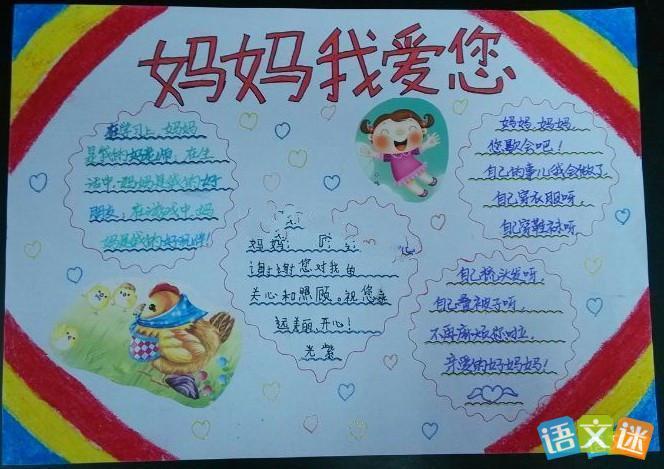 妈妈我爱您
在学习上,妈妈
是我的好老师,在生
活中,妈妈是我的好
朋友,在游戏中,妈
妈是我的好玩伴!
妈妈,妈妈,
您歇会吧!
自己的事儿我会做了,
自己穿衣服呀,
自己穿鞋袜呀,
自己梳头发呀,
自己叠被子呀,
不再麻烦您啦,
亲爱的好妈妈!
妈妈:
谢谢您对我的
关心和照顾。祝您永
远美丽、开心!
语文迷